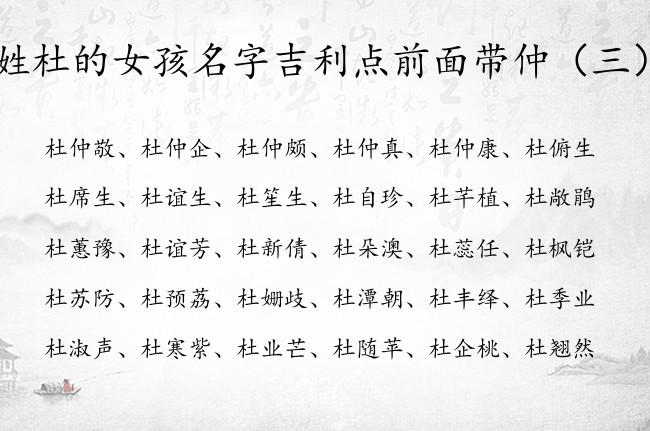 姓杜的女孩名字吉利点前面带仲（三）
杜仲敬、杜仲企、杜仲颇、杜仲真、杜仲康、杜俯生
杜席生、杜谊生、杜笙生、杜自珍、杜芊植、杜敞鹃
杜蕙豫、杜谊芳、杜新倩、杜朵澳、杜蕊任、杜枫铠
杜苏防、杜预荔、杜姗歧、杜潭朝、杜丰绎、杜季业
杜淑声、杜寒紫、杜业芒、杜随苹、杜企桃、杜翘然